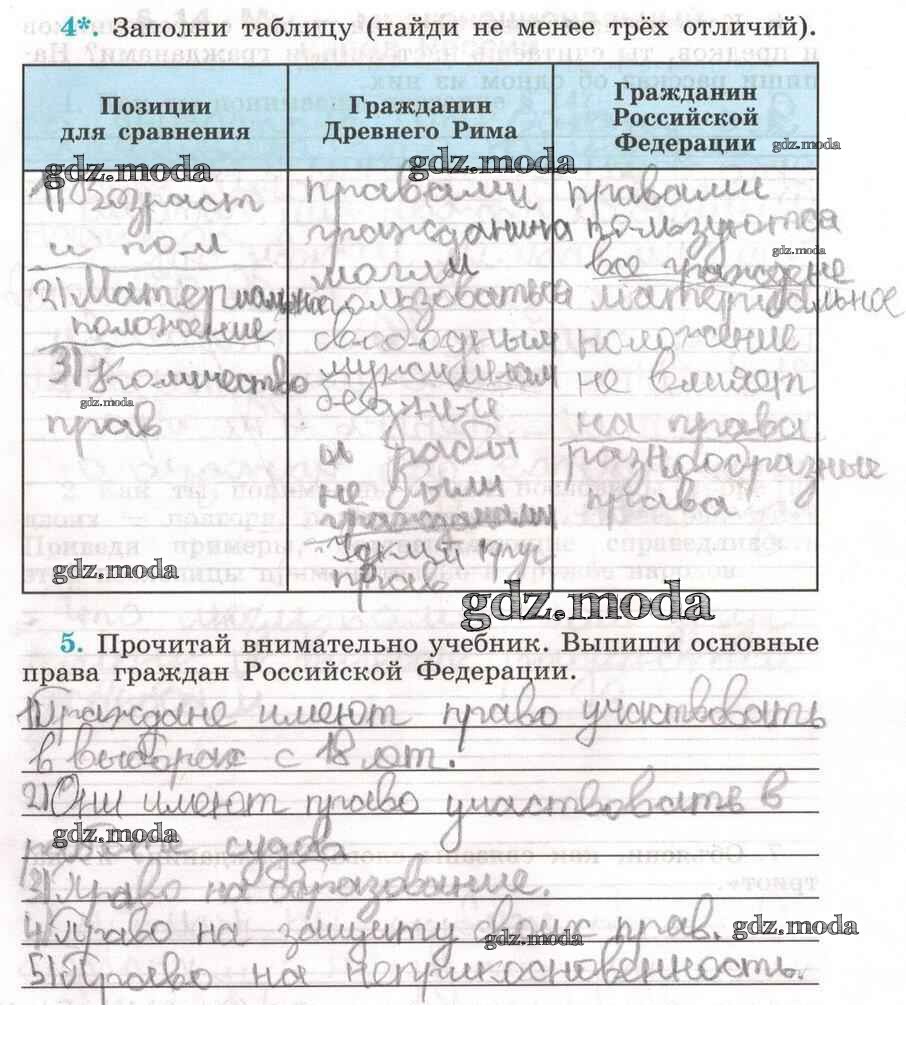 4*. Заполни таблицу (найди не менее трёх отличий).
Позиции
для сравнения
Гражданин
Древнего Рима
Гражданин
Российской
Федерации
gdz.moda
gdz.moda
gdz.moda
1) Возраст
и пол
2) Материальное
положение
3) Количество
gdz.moda
прав
правами
гражданина
могли
пользоваться
свободным
мужчинам
бедные
и рабы
не были
гражданами
Узкий круг
прав
правами
пользуются
gdz.moda
все граждане
материальное
положение
не влияет
на права
разнообразные
права
gdz.moda
gdz.moda
5. Прочитай внимательно учебник. Выпиши основные
права граждан Российской Федерации.
1) Граждане имеют право участвовать
в выборах с 18 лет.
2) Они имеют право участвовать в
gdz.moda
работе судов
3) Право на образование.
4) Право на защиту своих прав.
gdz.moda
gdz.moda
5) Право на неприкосновенность.